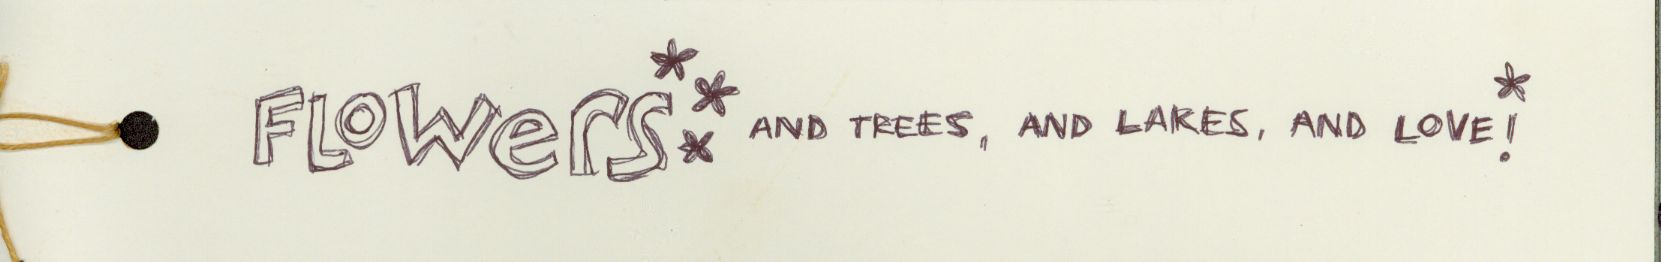 FLOWers AND TREES, AND LAKES, AND LOVE!